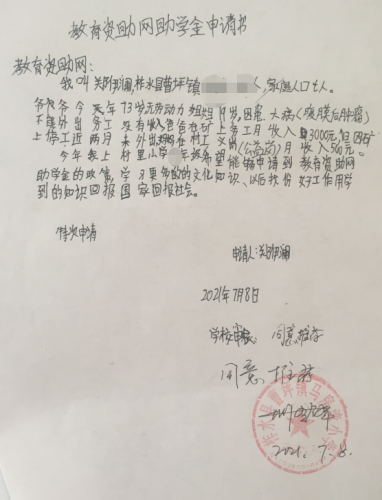 教育资助网助学金申请书
教育资助网：
我叫 柞水县曹坪 镇 人，家庭人口七人。
爷爷 今天年73岁无劳动力 姐姐 岁，因患 大病(腹膜后肿瘤)
不能外出务工 没有收入爸爸在矿上务工月收入 3000元，因
上停工近两月未外出现在村工 (公益岗)月收入500元。
今年我上村里小学 年级希望能够申请到教育资助网
助学金的政策，学习更多的的文化知识、以后找份好工作用学
到的知识回报国家回报社会。
特次申请
申请人：
2021年7月8日
学校审核： 同意推荐
同意推荐
2021.7.8.
柞水县曹坪镇马房湾小学